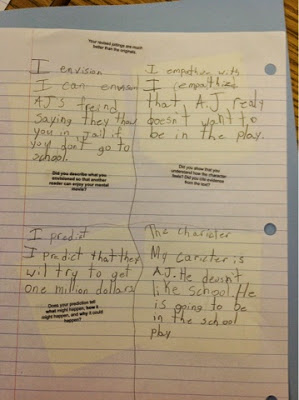 Your revised jottings are much
better than the originals.
I envision
I can envison
AJ'S freind
saying they thow
you in jail if
you don't go to
school.
Did you describe what you
envisioned so that another
reader can enjoy your mental
movie?
I empathize with
I empathize
that A.J. realy
doesn't want to
be in the play.
Did you show that you
understand how the character
feels? Did you cite evidence
from the text?
I predict
I predict that they
wil try to get
one million dollars
Does your prediction tell
what might happen, how it
might happen, and why it could
happen?
The charicter
My caricter is
AJ. He doesn't
like school. He
is going to be
in the school
play.